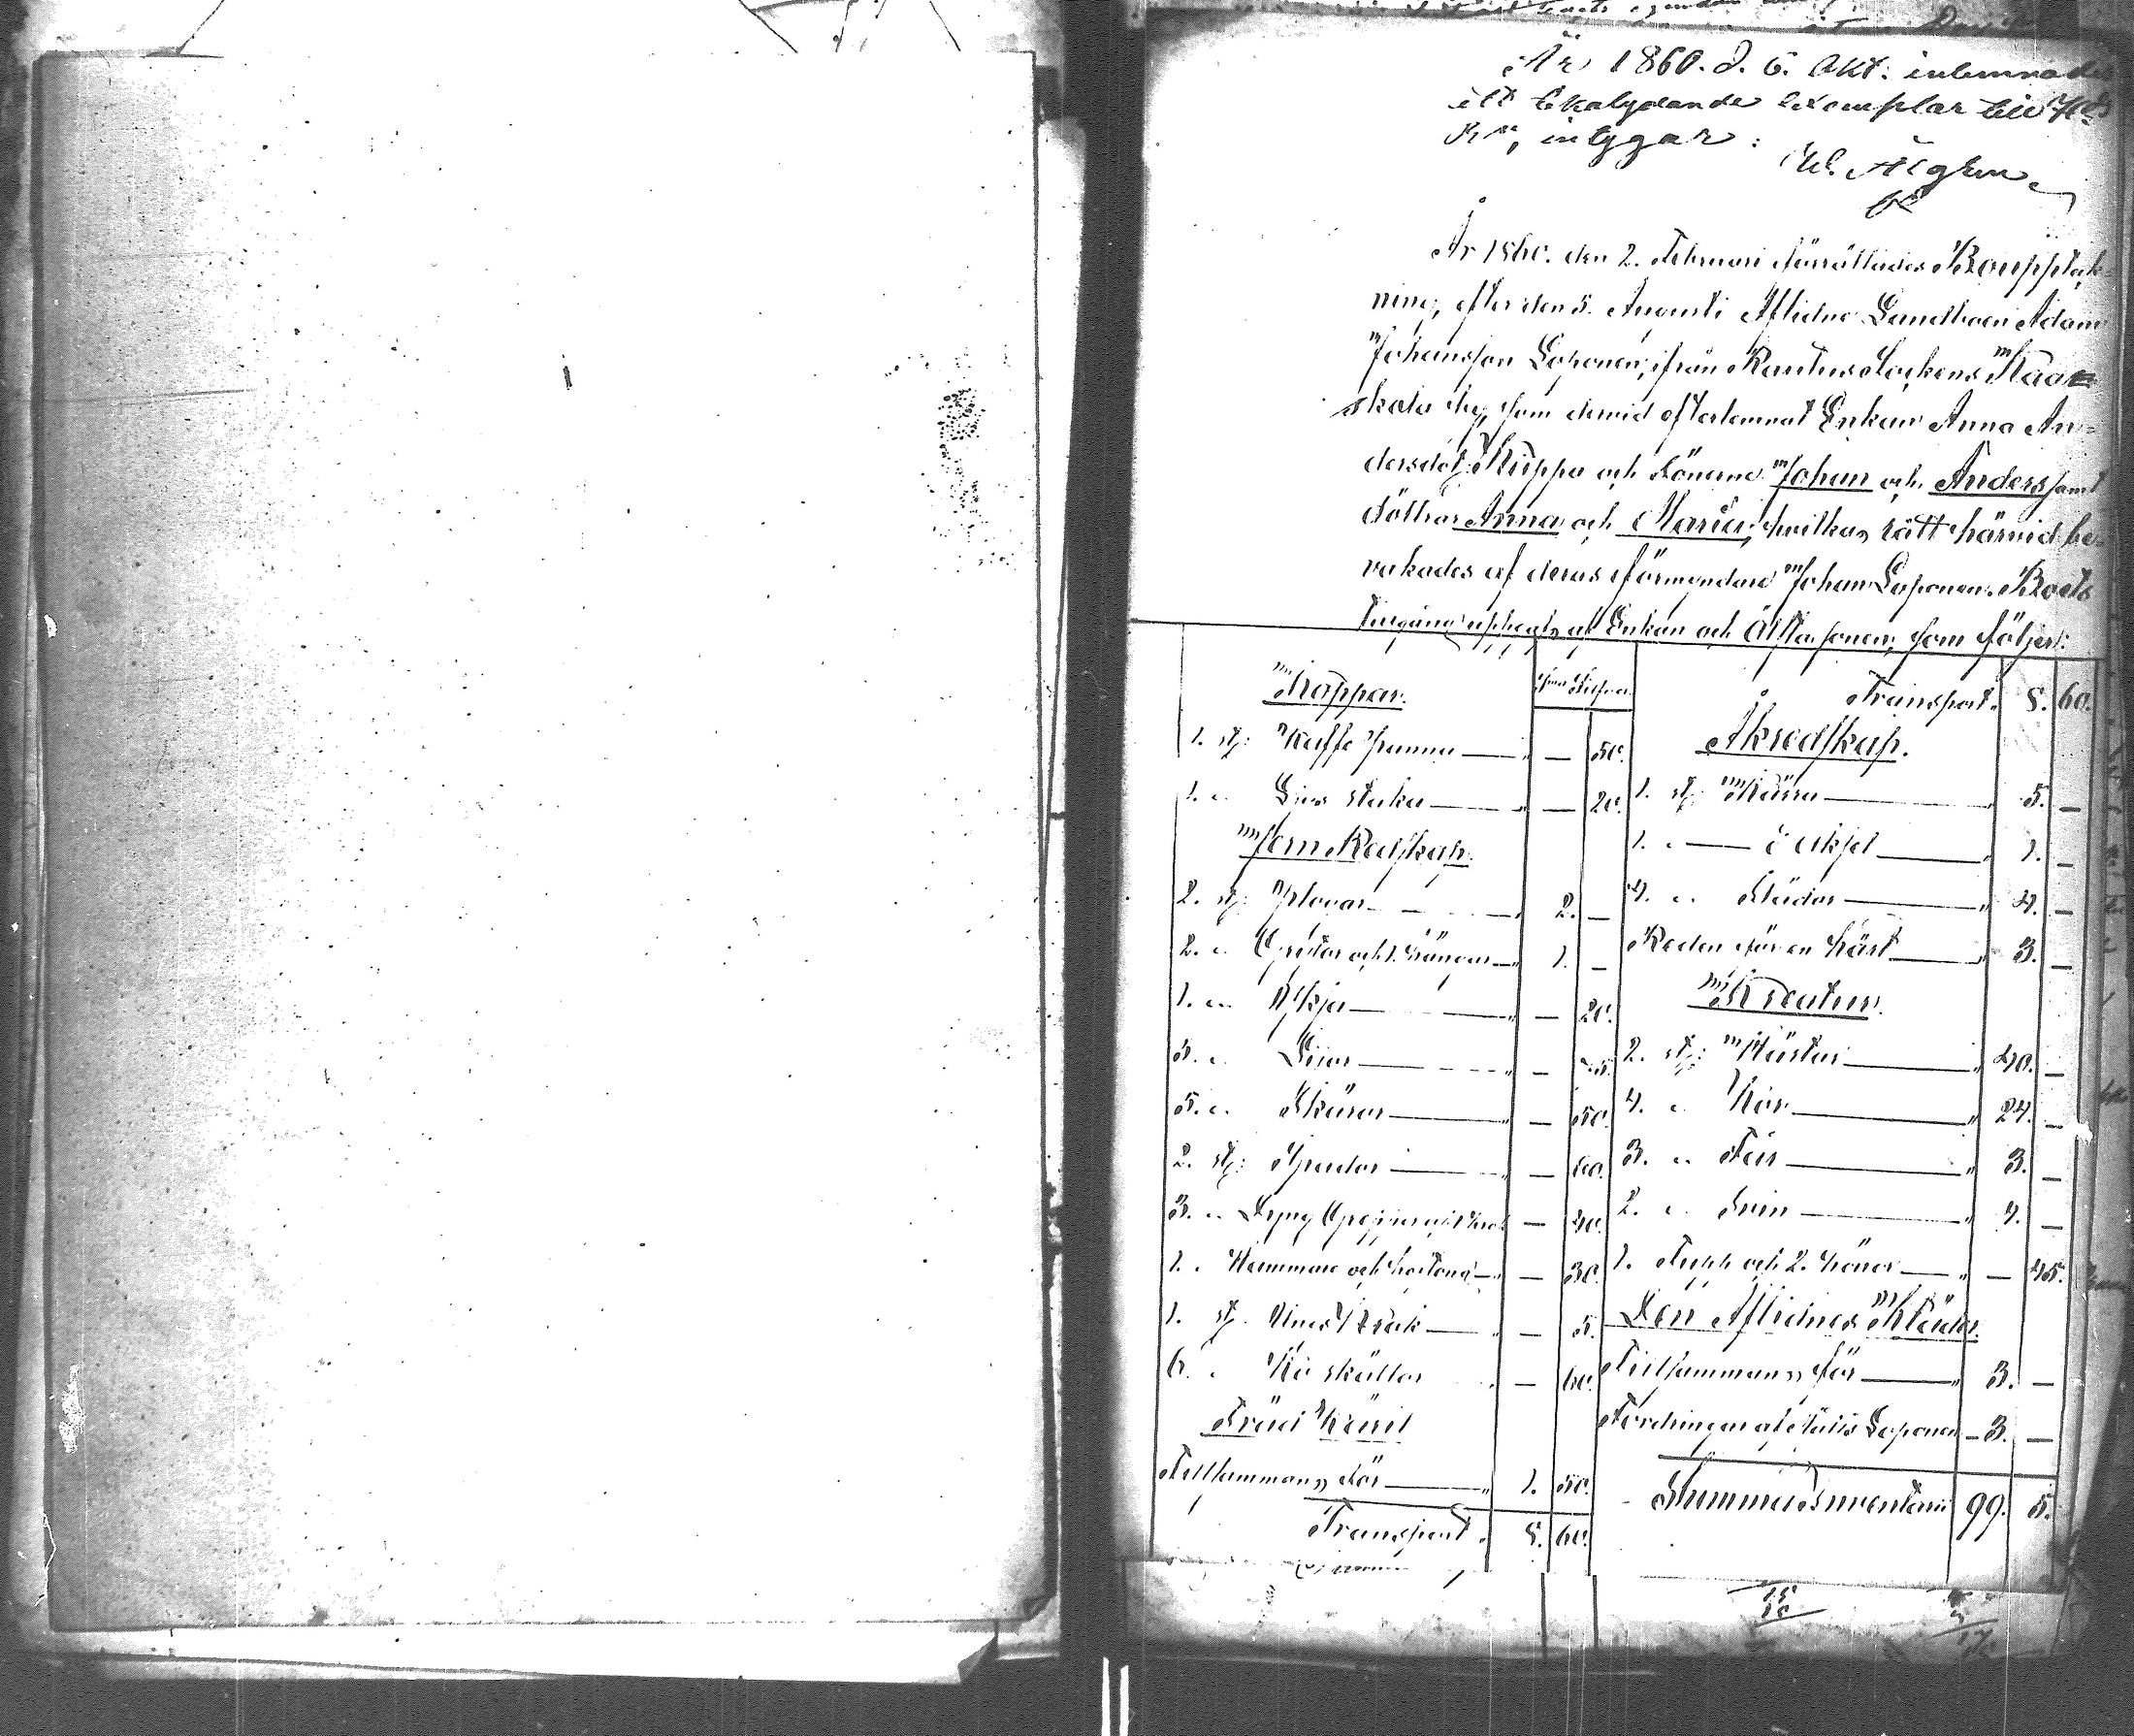 År 1860. d. 6. Okt. inlemnades
ett likalydande Exemplar till
intygar:
År 1860. den 2. Februari förrättades Bouppteck-
ning, efter den 5. Augusti Aflidne Landtboen Adam
Johansson Loponen, ifrån Rautus Sockens Haa-
skala by, som derwid efterlemnat Enkan Anna An-
dersdot: Kuppa och Sönerne Johan och Anders samt
döttrar Anna och Maria, hvilkas rätt härvid be-
vakades af deras förmyndare Johan Loponen. Boets
Tingång uppgafs af Enkan och älsta sonen, som följer:
Koppar. Silfver
1. st: Kaffe panna — " — 50.
1. " Ljus staka — " — 20.
Jern Redskap.
2. st: Plogar — " 2. —
2. " Grytor och 1. hängar — " 1. —
1. " Yxa — " — 20.
3. " Liar — " —
5. " Skäror — " — 50.
2. st: Spadar — " — 60.
3. " — 40.
1. " Hammare och hoftång — " — 30.
1. st. — " — 5.
6. " Ko skällor " — 60.
Träd Käril
Tillsammans för — " 1. 50.
Transport. 8. 60.
Transport. 8. 60.
Åkredskap.
1. st: Kärra — " 5. —
1. " — " 1. —
4. " Slädar — " 4. —
Redon för en häst — " 3. —
Kreatur.
2. st: Hästar — " 40. —
4. " Kor — " 24. —
3. " Får — " 3. —
2. " Svin — " 4. —
1. Tupp och 2. hönor — " — 45.
Den Aflidnes Kläder.
Tillsammans för — " 3. —
Fordringar af Loponen — 3. —
Summa Inventarii 99. 5.